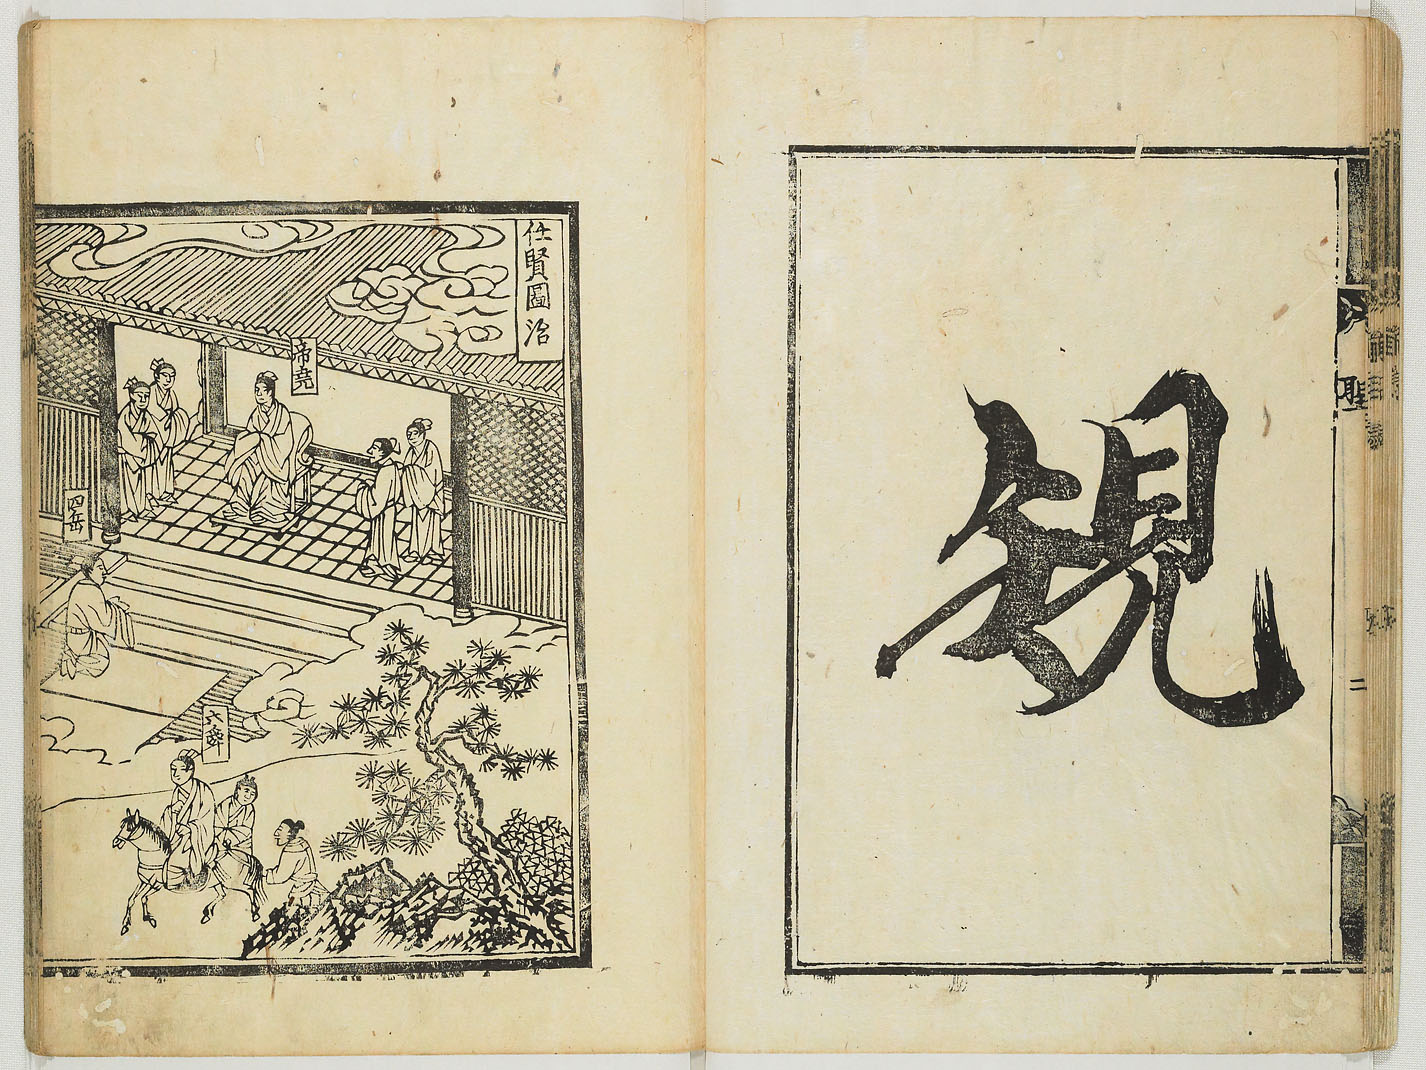 規
聖
二
任賢圖治
帝堯
四岳
大舜